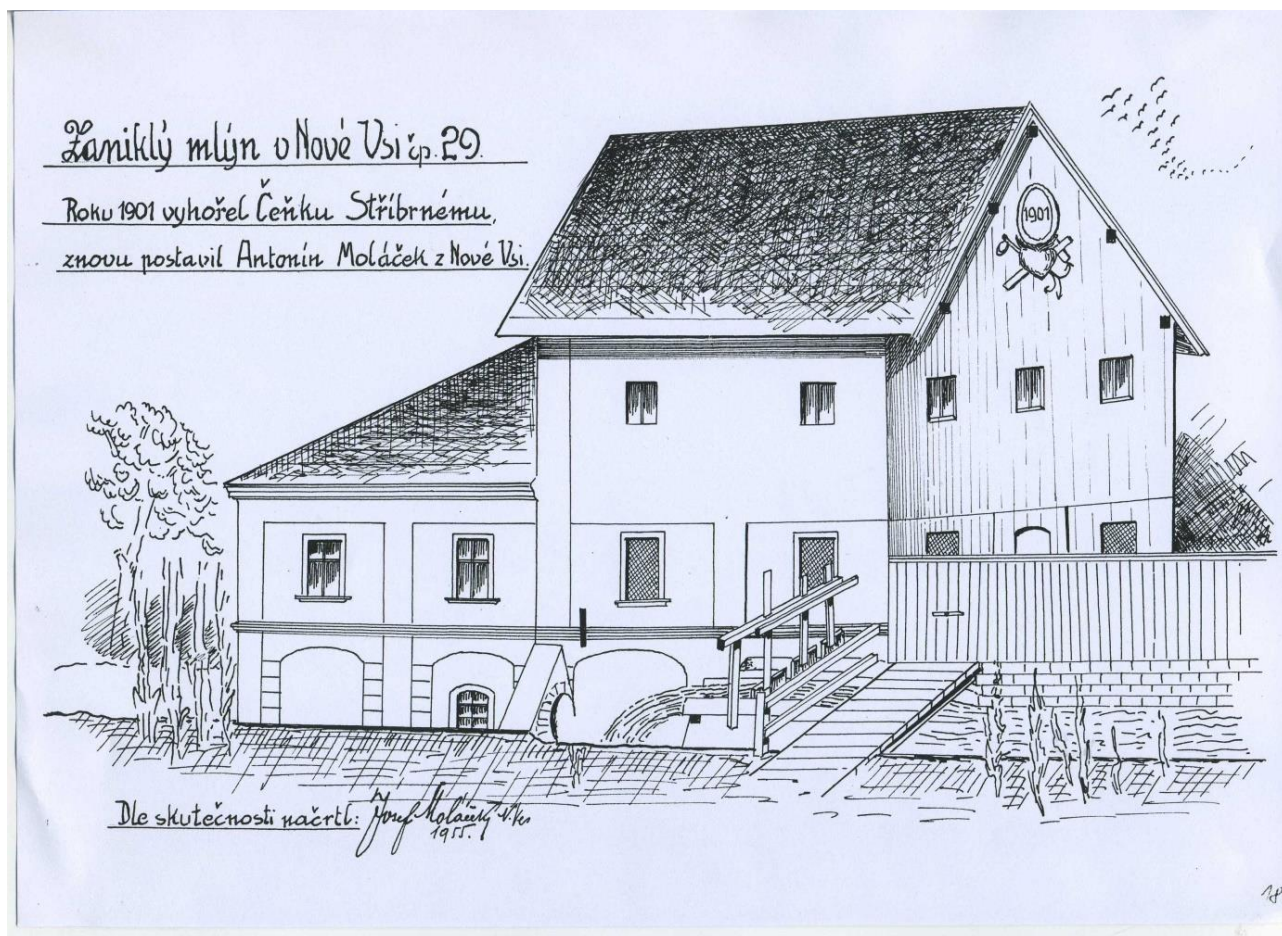 Zaniklý mlýn v Nové Vsi čp. 29.
Roku 1901 vyhořel Čeňku Stříbrnému,
znovu postavil Antonín Moláček z Nové Vsi.
1901
Dle skutečnosti načrtl: Josef Moláček N. Ves
1955.
18